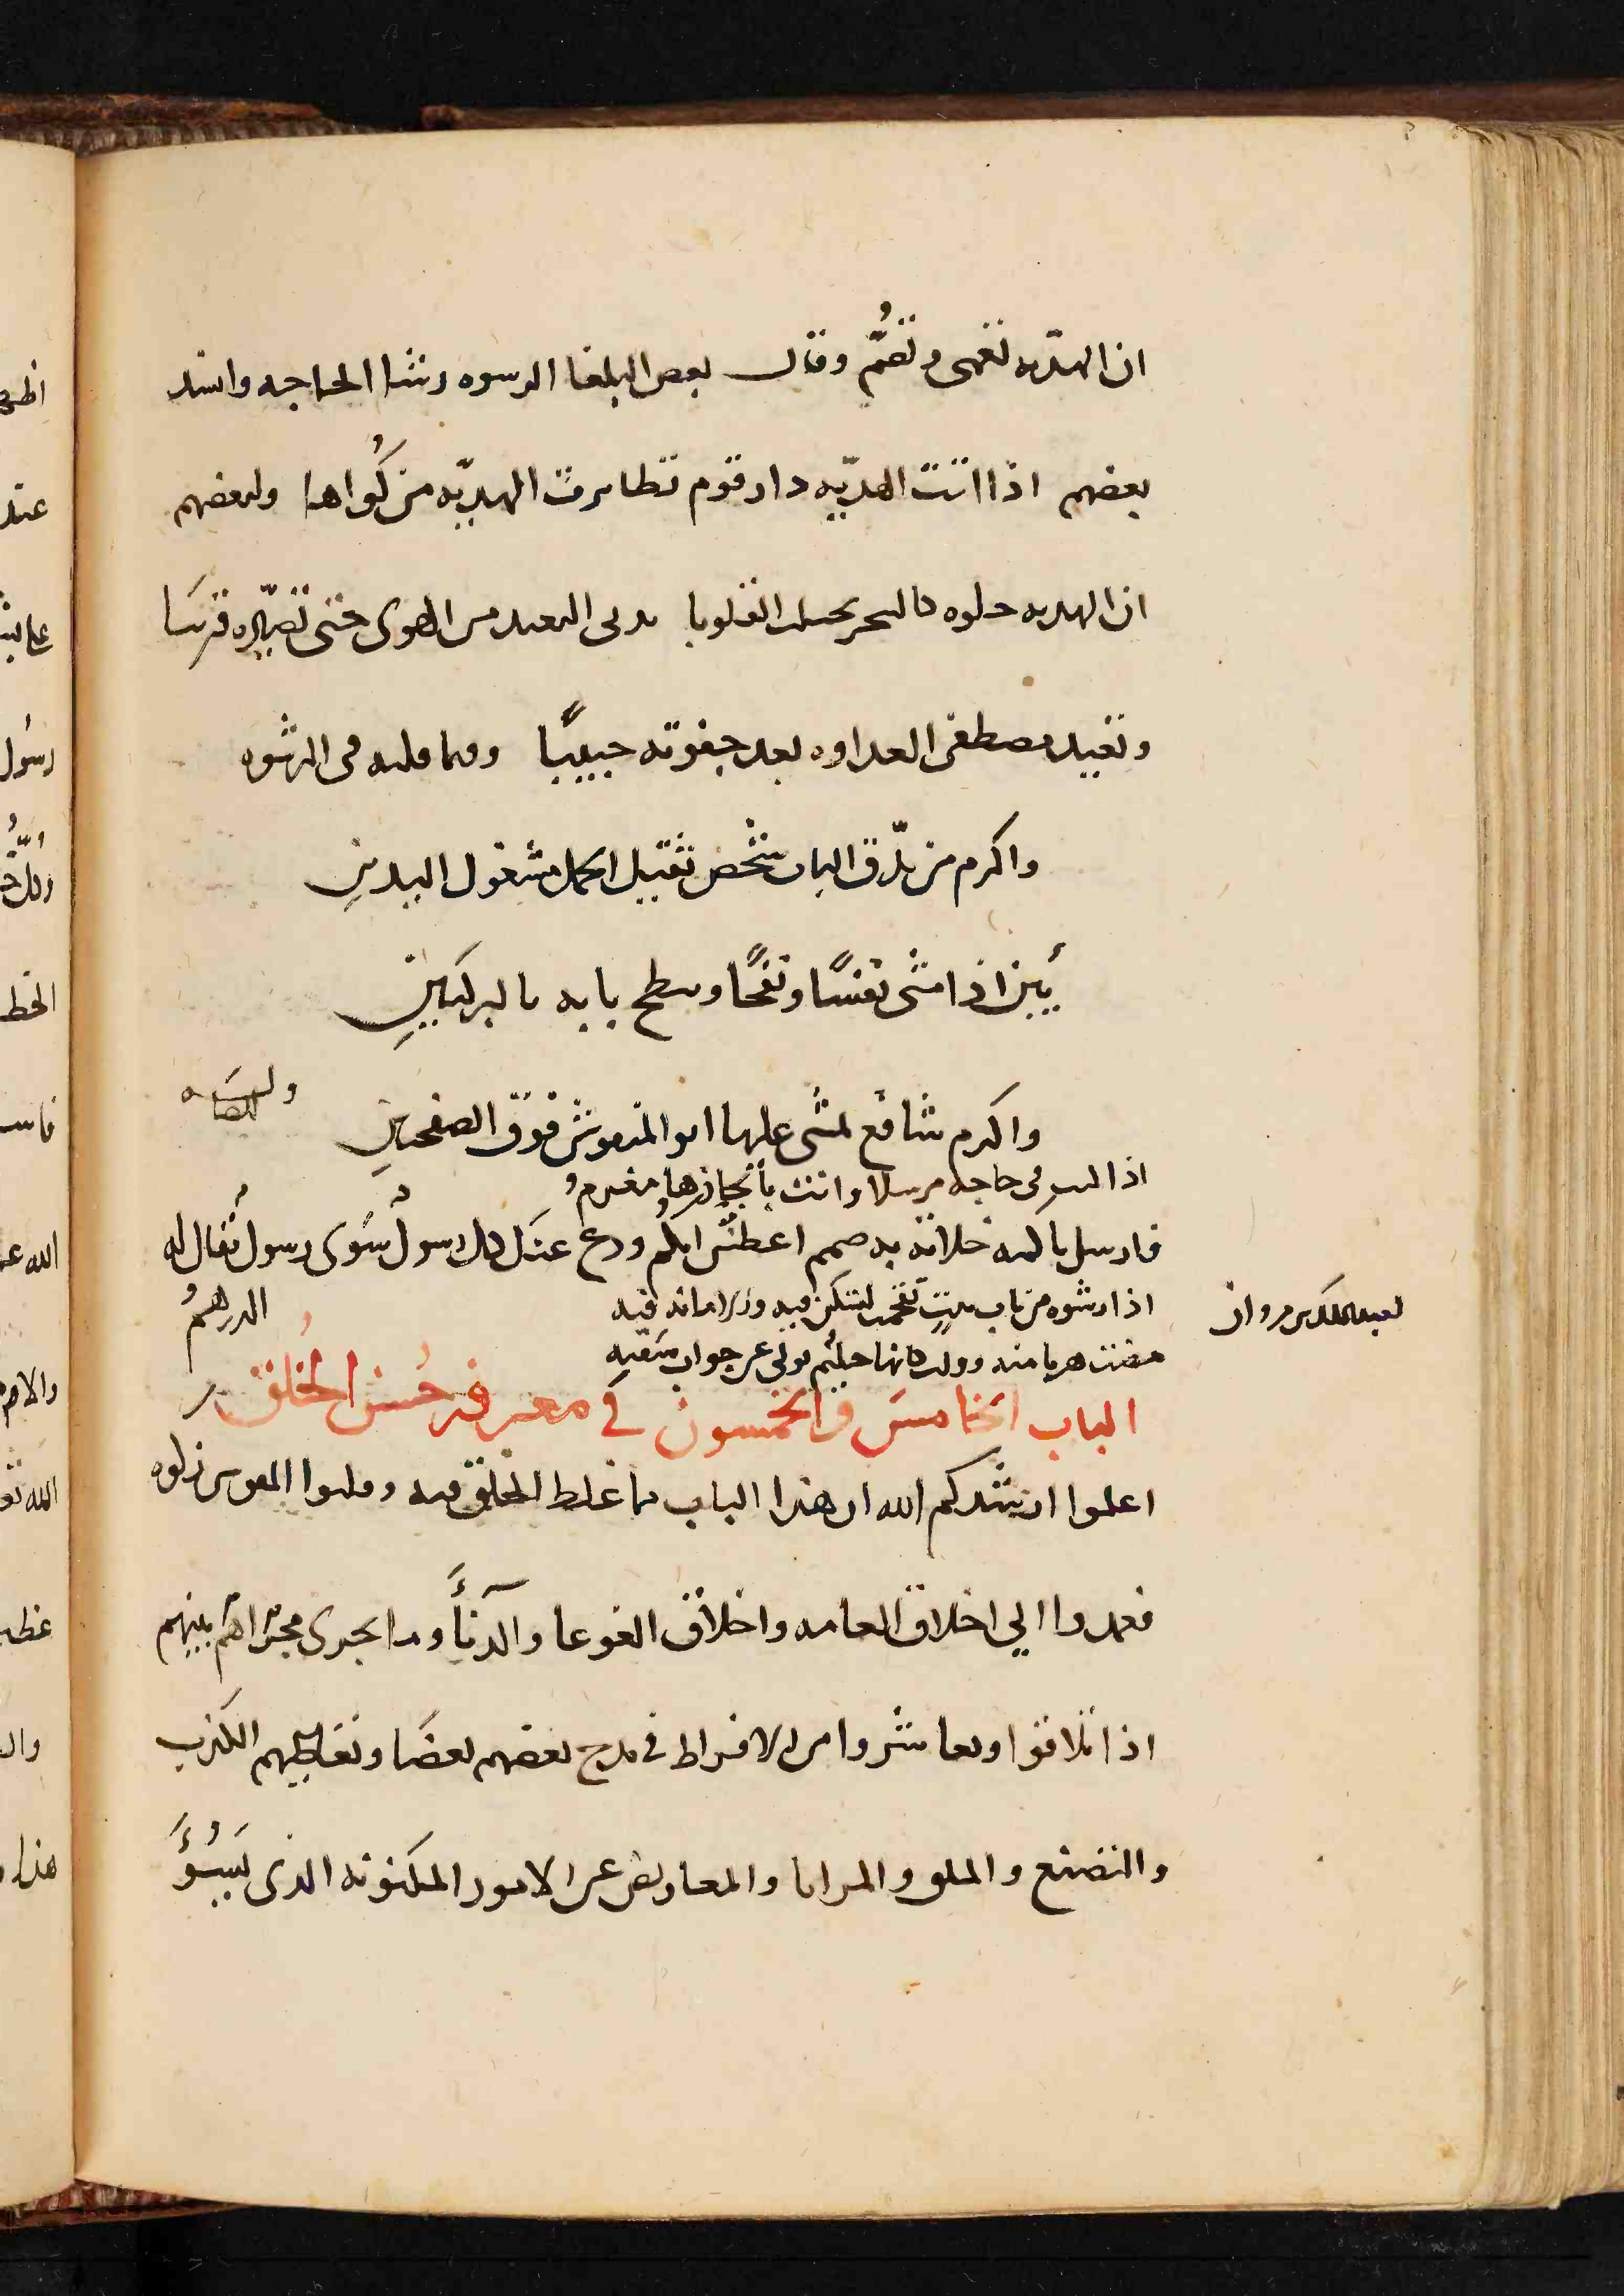 ان الهديه تعمى وتصم وقال بعض البلغا الرسوه رشا الحاجه وانشد
بعضهم اذا اتت الهديّه دار قوم تطايرت الهديّه من كُواها ولبعضهم
ان الهديه حلوه كالسحر تجتلب القلوبا تدنى البعيد من الهوى حتى تصيّره قريبا
وتعيد مصطغى العداوه بعد جفوته حبيبًا ومما قلته فى الرشوه
واكرم من يدّق الباب شخص ثقيل الحمل مشغول اليدينِ
يَئِن اذا مشى نفسًا ونفخًا وينطح بابه بالركبتينِ
واكرم شافع يمشى عليها ابو المنقوش فوق الصفحتينِ
اذا كنت فى حاجه مرسلا وانت بأنجازها مغرمُ
فارسل بأكمه خلابَه به صمم اعطش ابكمُ ودع عنك كل رسول سوى رسول يقال له
الدرهمُ
لعبد الملك بن مروان
اذا رشوه من باب بيتٍ تقحمت لتسكن فيه والامانه فيه
مضت هربا منه وولت كانها حليم تولى عن جواب سَفيهِ
الباب الخامسَ والخمسون في معرفة حُسن الخُلق
اعلموا ارشدكم الله ان هذا الباب مما غلط الخلق فيه وقلبوا القوس ركوه
فعمدوا الي اخلاق العامه واخلاق الغوغا والدنآءَ وما يجرى مجراهم بينهم
اذا تلاقوا وتعاشروا من الافراط فى مدح بعضهم بعضًا وتعاطيهم الكذب
والتصنع والملق والمرايا والمعاريض عن الامور المكنونه الذى يَسُوُءَ